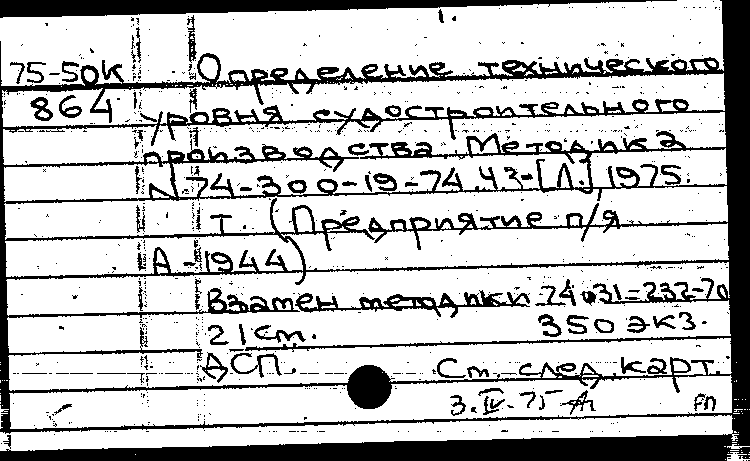 1.
75-50к
864
Определение технического
уровня судостроительного
производства. Методика
N 74-300-19-74. Ч.3-[Л.], 1975.
т. (Предприятие п/я
А-1944)
Взамен методики 74 031-232-70
21 ст. 350 экз.
ДСП. См. след. карт.
3.IV.75